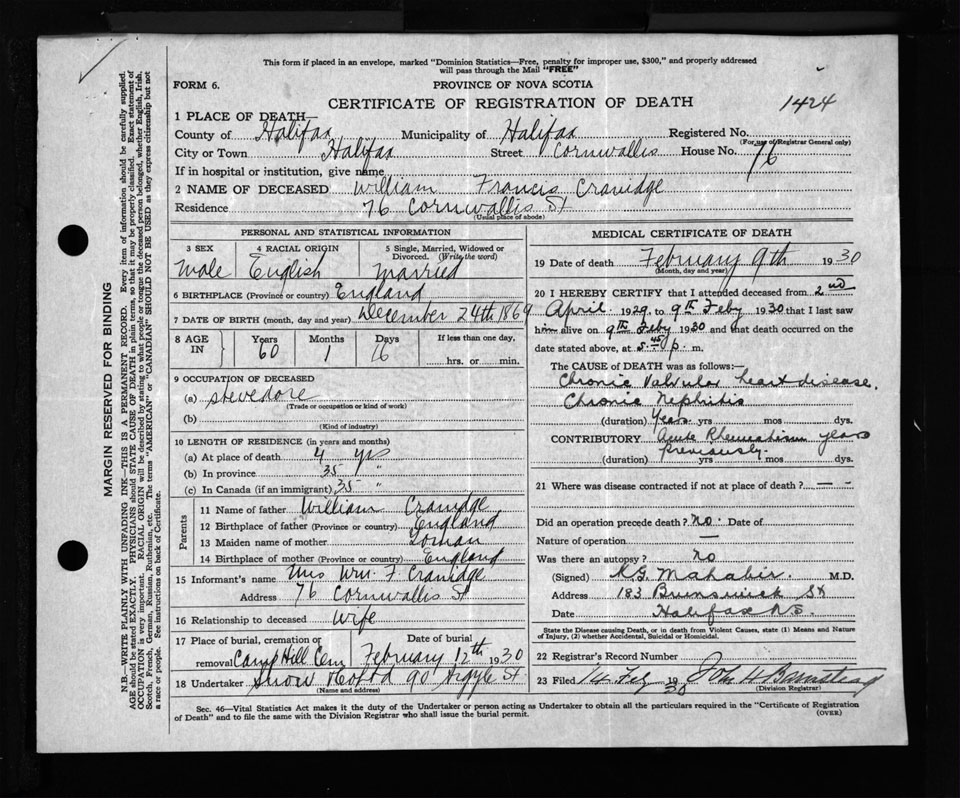 This form if placed in an envelope, marked "Dominion Statistics—Free, penalty for improper use, $300," and properly addressed
will pass through the Mail "FREE"
FORM 6.
PROVINCE OF NOVA SCOTIA
CERTIFICATE OF REGISTRATION OF DEATH
1424
1 PLACE OF DEATH—
County of Halifax Municipality of Halifax Registered No.
(For use of Registrar General only)
City or Town Halifax Street Cornwallis House No. 76
If in hospital or institution, give name
2 NAME OF DECEASED William Francis Cranidge
Residence 76 Cornwallis St
(Usual place of abode)
PERSONAL AND STATISTICAL INFORMATION
3 SEX 4 RACIAL ORIGIN 5 Single, Married, Widowed or
Divorced. (Write the word)
Male English Married
6 BIRTHPLACE (Province or country) England
7 DATE OF BIRTH (month, day and year) December 24th 1869
8 AGE IN Years Months Days If less than one day,
60 1 16 hrs. or min.
9 OCCUPATION OF DECEASED
(a) Stevedore
(Trade or occupation or kind of work)
(b)
(Kind of industry)
10 LENGTH OF RESIDENCE (in years and months)
(a) At place of death 4 yrs
(b) In province 35 "
(c) In Canada (if an immigrant) 35 "
Parents
11 Name of father William Cranidge
12 Birthplace of father (Province or country) England
13 Maiden name of mother Loman
14 Birthplace of mother (Province or country) England
15 Informant's name Mrs Wm. F Cranidge
Address 76 Cornwallis St
16 Relationship to deceased Wife
17 Place of burial, cremation or removal Camp Hill Cem Date of burial February 12th 1930
18 Undertaker Snow 90 Argyle St
(Name and address)
MEDICAL CERTIFICATE OF DEATH
19 Date of death February 9th 1930
(Month, day and year)
20 I HEREBY CERTIFY that I attended deceased from 2nd
April 1929 to 9th Feby 1930 that I last saw
him alive on 9th Feby 1930 and that death occurred on
date stated above, at 5.45 p. m.
The CAUSE of DEATH was as follows:—
Chronic Valvular heart disease.
Chronic Nephritis
(duration) Years yrs mos dys.
CONTRIBUTORY Acute Rheumatism years
previously.
(duration) yrs mos dys.
21 Where was disease contracted if not at place of death? — —
Did an operation precede death? no. Date of
Nature of operation —
Was there an autopsy? no
(Signed) K.G. Mahabir. M.D.
Address 183 Brunswick St
Date Halifax N.S.
State the Disease causing Death, or in death from Violent Causes, state (1) Means and Nature
of Injury, (2) whether Accidental, Suicidal or Homicidal.
22 Registrar's Record Number
23 Filed 14 Feby 1930 John H Barnstead
(Division Registrar)
Sec. 46—Vital Statistics Act makes it the duty of the Undertaker or person acting as Undertaker to obtain all the particulars required in the "Certificate of Registration
of Death" and to file the same with the Division Registrar who shall issue the burial permit.
(OVER)
MARGIN RESERVED FOR BINDING
N.B.—WRITE PLAINLY WITH UNFADING INK—THIS IS A PERMANENT RECORD. Every item of information should be carefully supplied.
AGE should be stated EXACTLY. PHYSICIANS should STATE CAUSE OF DEATH in plain terms, so that it may be properly classified. Exact statement of
OCCUPATION is very important. RACIAL ORIGIN will be described by stating to what people or tongue the deceased person belonged, whether English, Irish,
Scotch, French, German, Russian, Ruthenian, etc. The terms "AMERICAN" or "CANADIAN" SHOULD NOT BE USED as they express citizenship but not
a race or people. See instructions on back of Certificate.